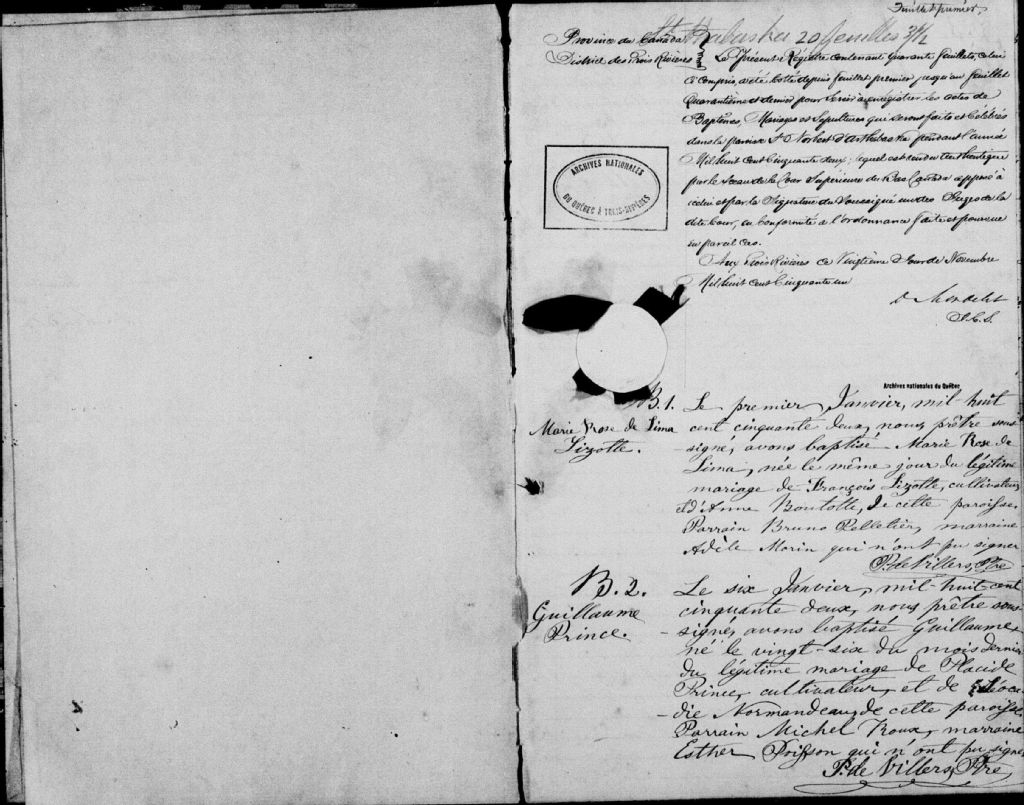 Feuillet premier
Arthabaska 20 feuilles 3½
Province du Canada
District des Trois Rivières
Le Présent Régistre contenant quarante feuillets, celui
ci compris, a été cotté depuis feuillet premier jusqu'au feuillet
Quarantième et dernier pour servir à enrégistrer les actes de
Baptêmes, Mariages et Sépultures qui seront faits et célébrés
dans la paroisse St Norbert d'Arthabaska pendant l'année
Mil huit cent cinquante deux; lequel est rendu authentique
par le sceau de la Cour Supérieure du Bas Canada apposé à
icelui et par la Signature du Soussigné un des Juges de la
dite Cour, en conformité à l'ordonnance faite et pourvue
en pareil cas.
Aux Trois Rivières ce Vingtième Jour de Novembre
Mil huit cent Cinquante un
D Mondelet
J.C.S.
ARCHIVES NATIONALES
DU QUÉBEC À TROIS-RIVIÈRES
Archives nationales du Québec
B.1.
Marie Rose de Lima
Lizotte.
Le premier Janvier, mil-huit
cent cinquante deux, nous prêtre sous-
-signé, avons baptisé Marie Rose de
Lima, née le même jour du légitime
mariage de François Lizotte, cultivateur
et d'Anne Boutotte, de cette paroisse.
Parrain Bruno Pelletier, marraine
Adèle Morin qui n'ont pu signer
P. de Villers, Ptre
B.2.
Guillaume
Prince.
Le six Janvier, mil-huit-cent
cinquante deux, nous prêtre sous-
-signé, avons baptisé Guillaume,
né le vingt-six du mois dernier
du légitime mariage de Placide
Prince, cultivateur, et de
-die Normandeau, de cette paroisse.
Parrain Michel Roux, marraine
Esther Poisson qui n'ont pu signer
P. de Villers, Ptre